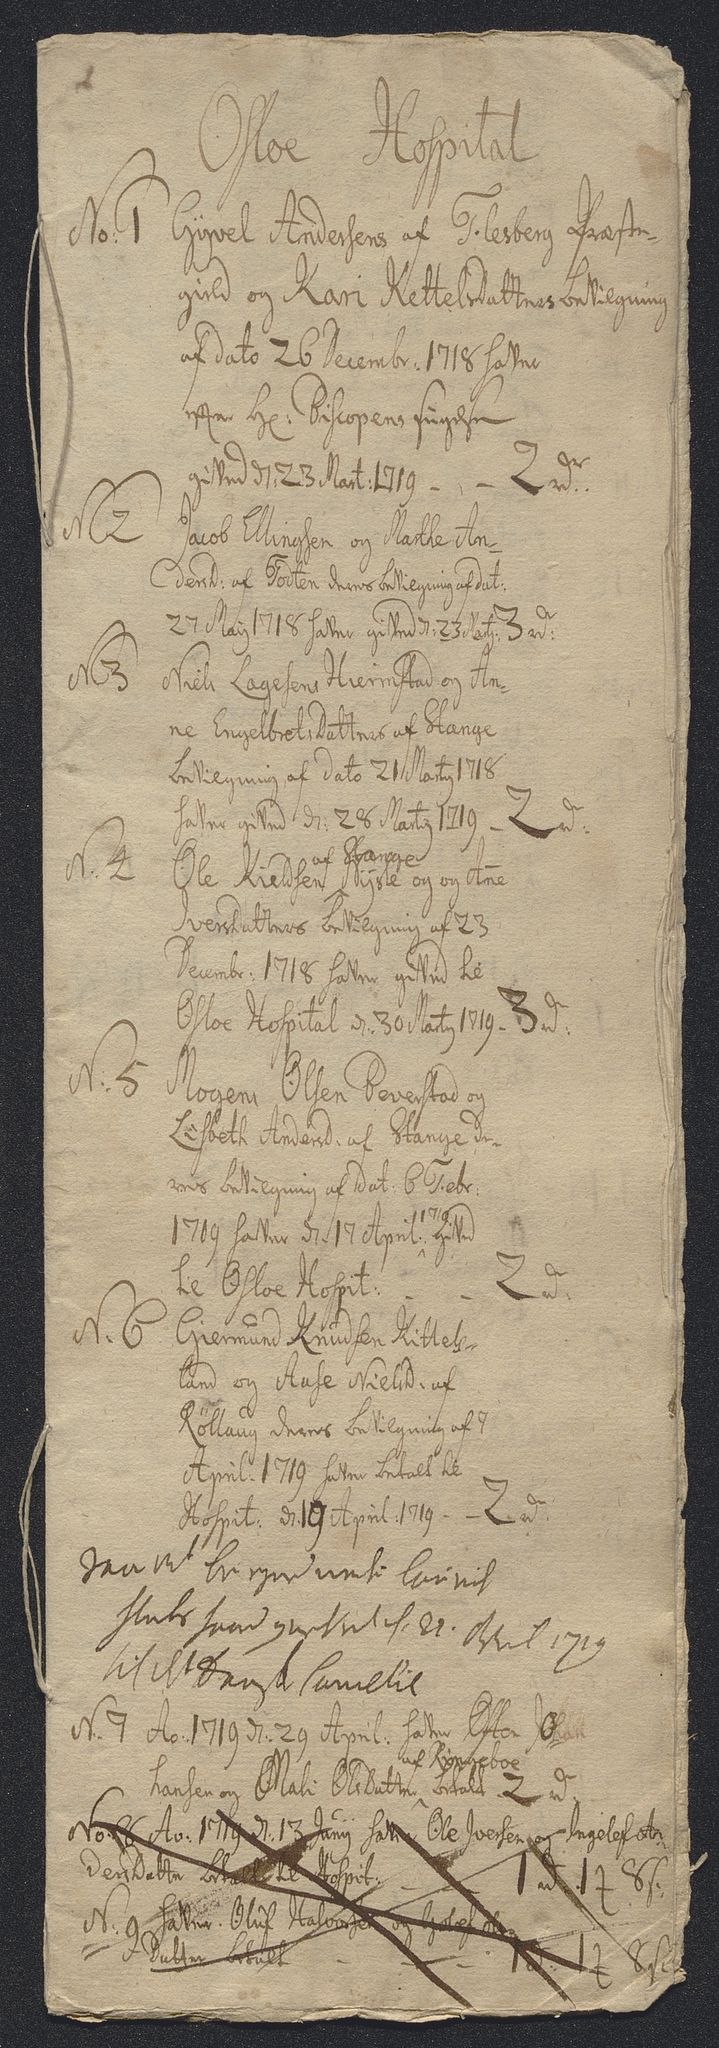 Osloe Hospital
No: 1 Gjvel Andersens af Flesberg Præste-
gield og Kari Kettelsdatters beVilgning
af dato 26 Decembr: 1718 haver
efter Hr: Biscopens
giVed d: 23 Mart: 1719 - , - 2 rdr.
N 2 Jacob Ellingsen og Marthe An-
dersd: af Todten deres beVilgning af dat:
27 Maij 1718 haver giVed d: 23 Martj: 3 rd:
N 3 Niels Lagesens Hiermstad og An-
ne EngelbretsDatters af Stange
beVilgning af dato 21 Martj 1718
haver giVed d: 28 Martj 1719 - 2 rd:
N. 4 Ole Kieldsen af Stange og og Ane
IversDatters beVilgning af 23
Decembr: 1718 haver giVed te
Osloe Hospital d: 30 Martj 1719 - 3 rd:
N. 5 Mogens Olsen Beverstad og
Lisbeth Andersd: af Stange de-
res beVilgning af dat: 6 Febr:
1719 haver d: 17 April: 1719 giVed
te Osloe Hospit: - - 2 rd:
N. 6 Giermund Knudsen Kittels-
land og Aase Nielsd: af
Röllaug deres beVilgning af 7
April: 1719 haver betalt te
Hospit: d: 19 April: 1719 - - 2 rd:
April 1719
N. 7 Ao: 1719 d: 29 April: haver Joh
hansen og Mali OlsDatter af Rönneboe betalt 2 rd:
No: 8 Ao: 1719 d: 13 Junij haver Ole Iversen og Ingelef An-
dersDatter betalt te Hospit: - - - 1 rd. 1 8 s:
N: 9 haver Oluf Halvorsen og
Datter betalt - - - - 1 rd: 1 8 s: